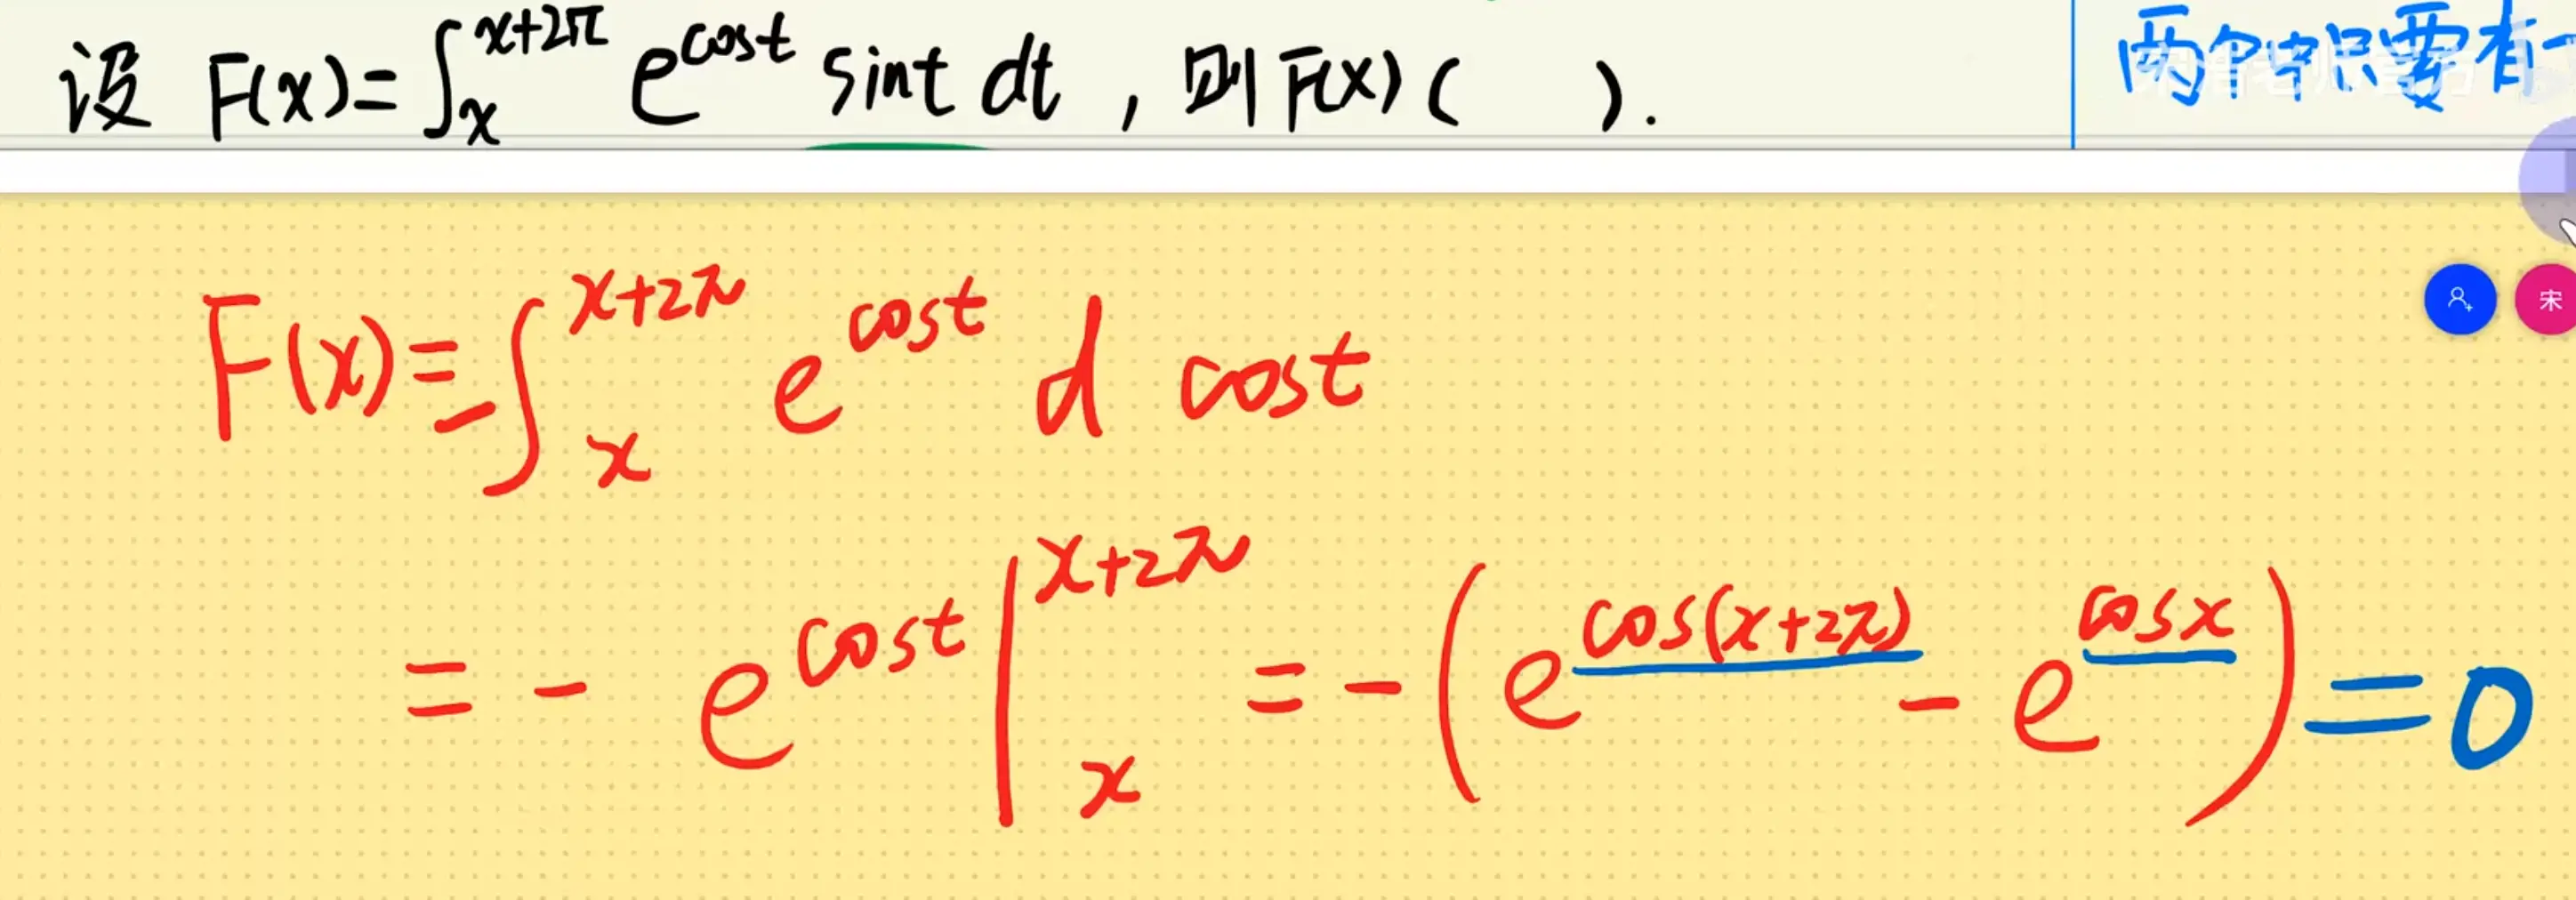 设 F(x)=∫_x^{x+2π} e^{cost} sint dt , 则 F(x) ( ).
两个中只要有一
F(x)=-∫_x^{x+2π} e^{cost} d cost
= - e^{cost} |_x^{x+2π} = - ( e^{cos(x+2π)} - e^{cosx} ) = 0
宋